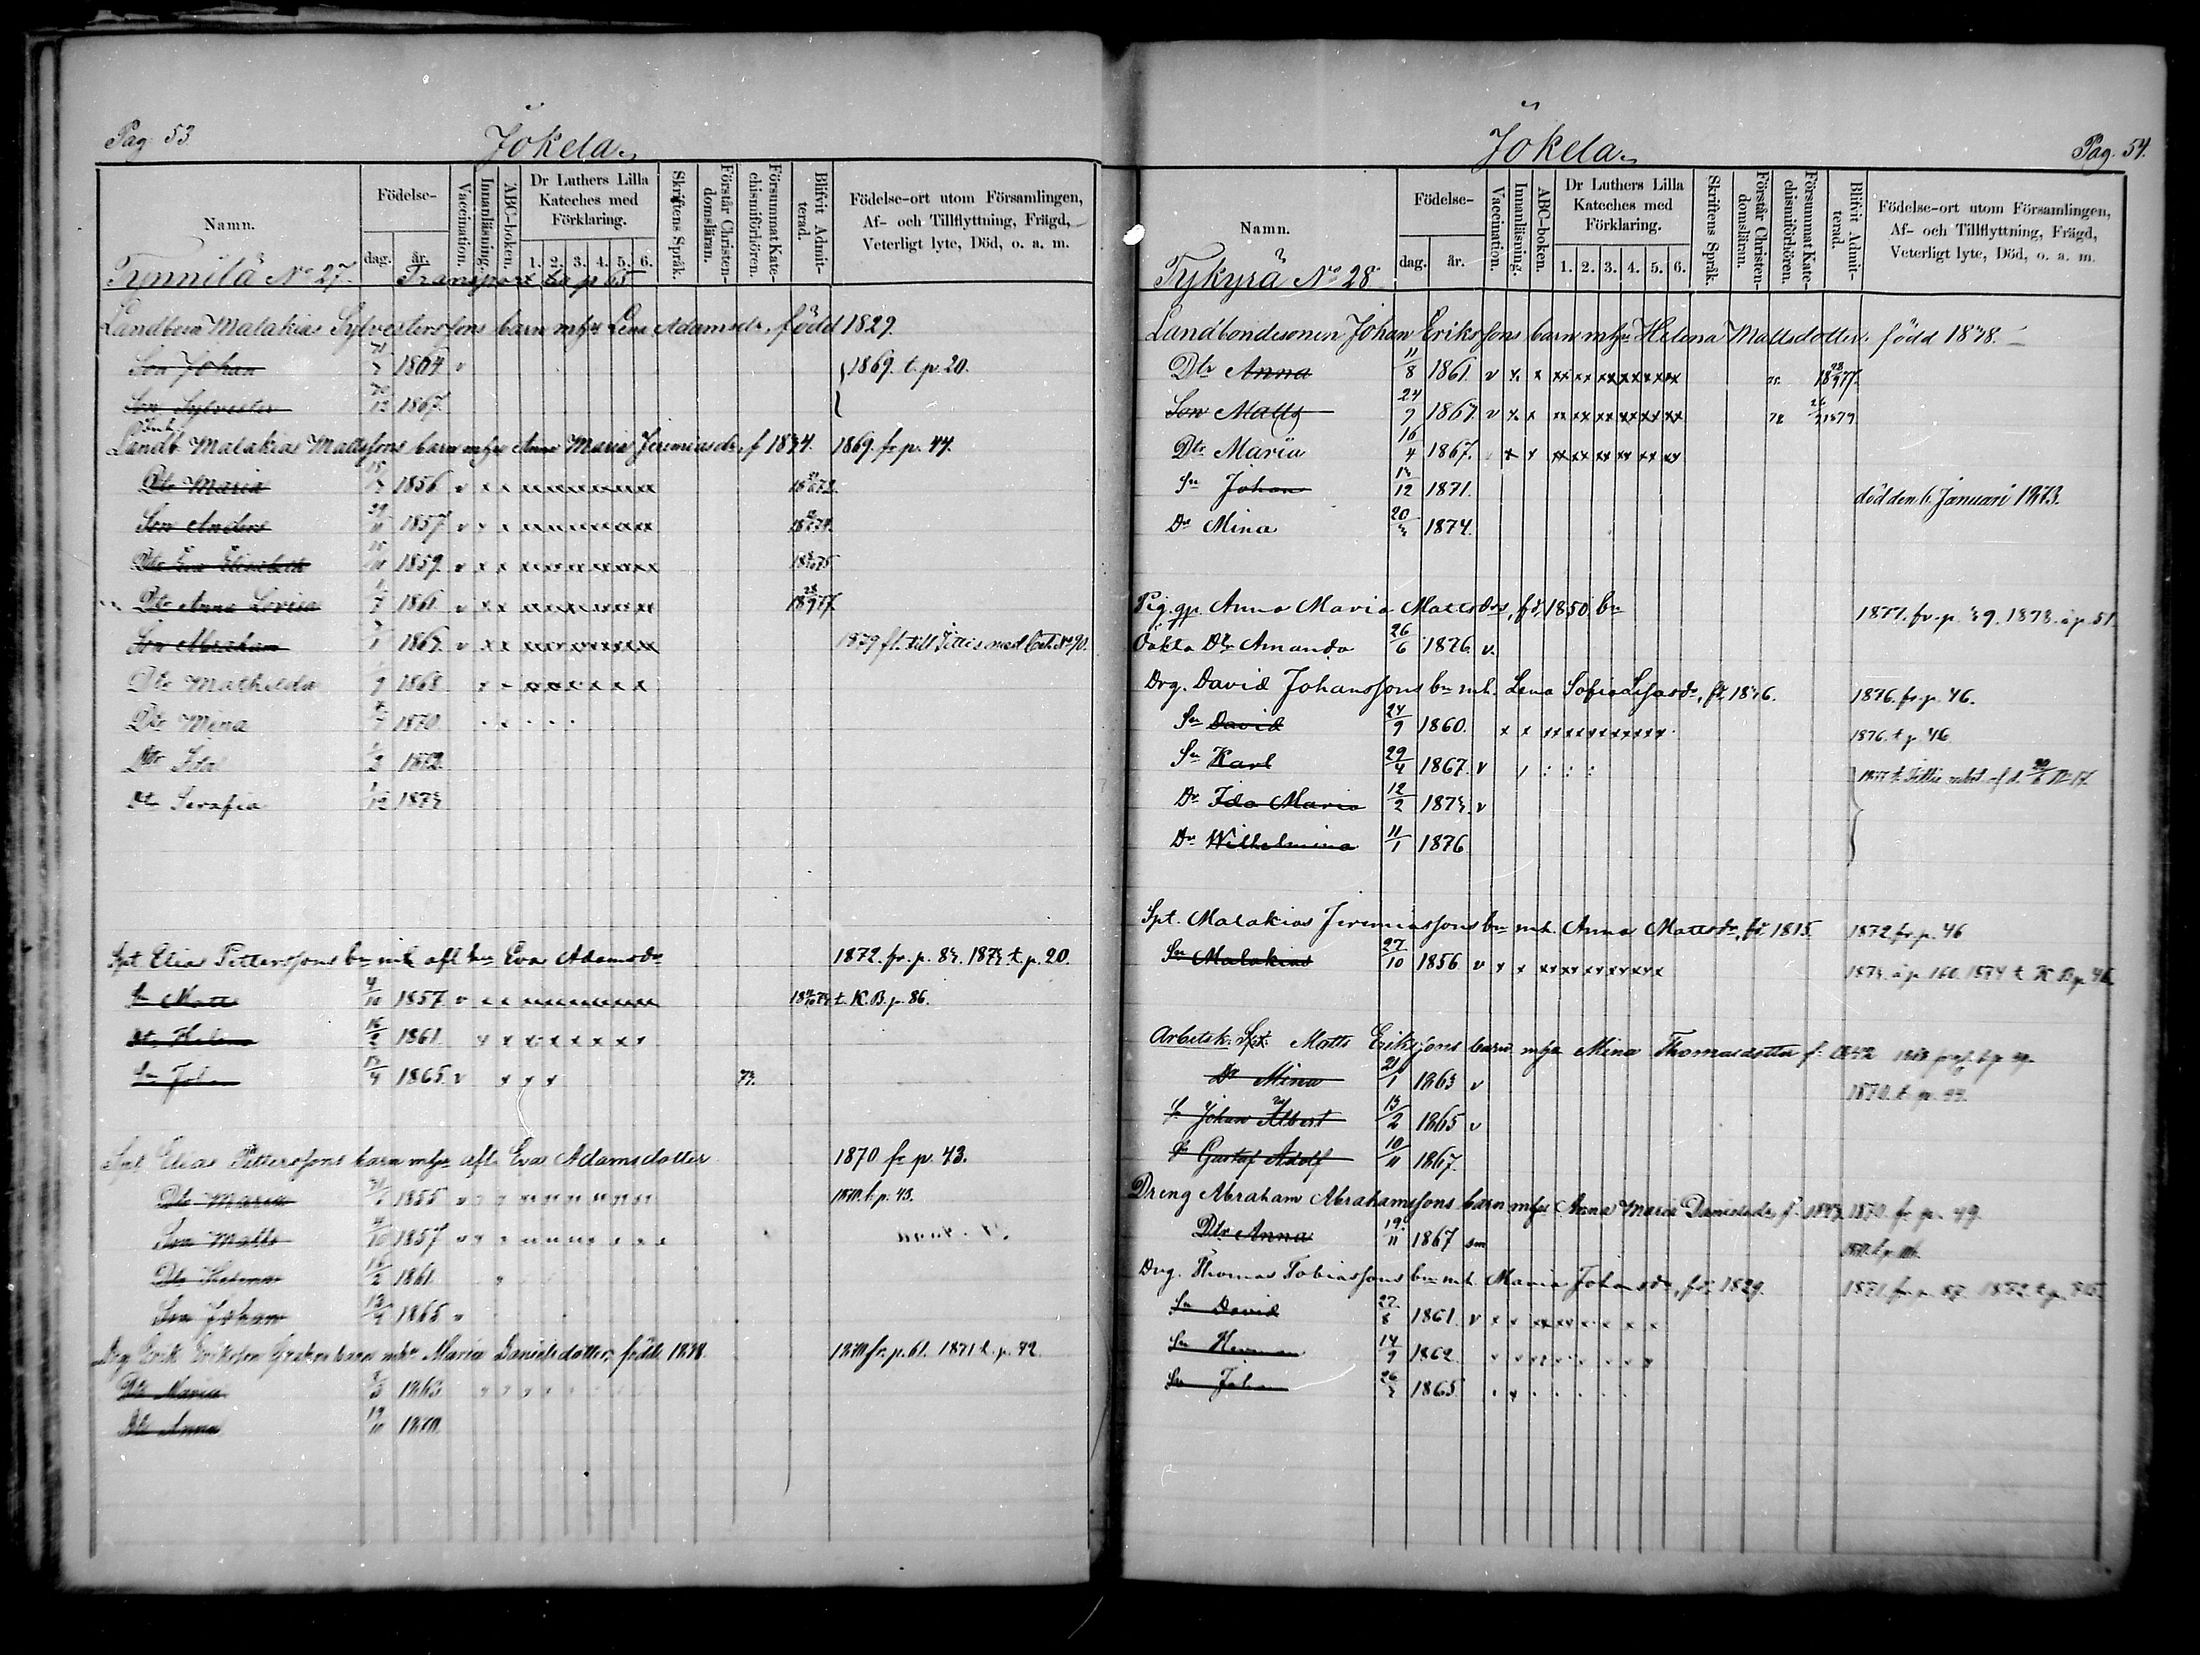 Pag. 53
Jokela.
Namn.
Födelse-
dag.
år.
Vaccination.
Innanläsning.
ABC-boken.
Dr Luthers Lilla Kateches med Förklaring.
1. 2. 3. 4. 5. 6.
Skriftens Språk.
Förstår Christen-domsläran.
Försummat Kate-chismiförhören.
Blifvit Admit-terad.
Födelse-ort utom Församlingen, Af- och Tillflyttning, Frägd, Veterligt lyte, Död, o. a. m.
No 27. Transport to p 65
Landbon Malakias Sylvesterssons barn mhu Lena Adamsdr, född 1829.
Son Johan 1864 v 1869. t. p. 20.
Son Sylvester 1867.
Landb. Malakias Mattssons barn mhu Maria Jeremiasdr, f 1834. 1869. fr. p. 44.
Dtr Maria 1856 v x x
Son Anders 1857 v x x
Dtr Eva Elisabeth 1859. v x x
Dtr Anna Lovisa 1861 v x x
Son Abraham 1867. v x x 1879 fl. till Pittis med bet. No 90.
Dtr Mathilda 1868
Dtr Mina 1870
Dtr Ida 1872.
Dtr Serafia 1873
Spt. Elias Petterssons bn mh afl hu Eva Adamsdr 1872. fr. p. 83. 1873 t. p. 20.
Sn Matts 4/10 1857 v x x t. K. B. p. 86.
Dr Helena 16/2 1861.
Sn Joh 13/4 1865. v x x x 73.
Spt Elias Petterssons barn mhu afl. Eva Adamsdotter 1870 fr p. 43.
Dtr Maria 1855 1870. t. p. 43.
Son Matts 4/10 1857
Dtr Helena 16/2 1861
Son Johan 13/4 1865
Drg Erik Eriksson barn mhu Maria Danielsdotter, född 1838. 1870 fr. p. 61. 1871 t. p. 42
Dtr Maria 1863
Dtr Anna 19/10 1870.
Jokela.
Pag. 54.
Namn.
Födelse-
dag.
år.
Vaccination.
Innanläsning.
ABC-boken.
Dr Luthers Lilla Kateches med Förklaring.
1. 2. 3. 4. 5. 6.
Skriftens Språk.
Förstår Christen-domsläran.
Försummat Kate-chismiförhören.
Blifvit Admit-terad.
Födelse-ort utom Församlingen, Af- och Tillflyttning, Frägd, Veterligt lyte, Död, o. a. m.
Tykyrä No 28.
Landbondesonen Johan Erikssons barn mhu Helena Mattsdotter. född 1838.
Dtr Anna 11/8 1861. v x x
Son Matts 24/9 1867. v x x
Dtr Maria 16/4 1867. x x
Sn Johan 13/12 1871. död den 6 Januari 1873.
Dr Mina 20/3 1874.
Pig. gp Anna Maria Mattsdrs, fd. 1850 bn 1877. fr. p. 39. 1878. å p. 51.
Oäkta Dtr Amanda 26/6 1876. v.
Drg. David Johanssons bn mh. Lena Sofia 1876. fr. p. 46.
Sn David 24/9 1860. x x 1876. t. p. 46
Sn Karl 29/4 1867. v
Dr Ida Maria 12/2 1873. v
Dr Wilhelmina 11/1 1876
Spt. Malakias Jeremiassons bn mh. Anna Mattsdr, fd. 1815. 1872 fr. p. 46
Sn Malakias 27/10 1856 v x x 1873. å p. 160. 1874 t. K. B. p. 46
Arbetsk. Spt. Matts Erikssons barn mhu Mina Thomasdotter f.
Dr Mina 21/1 1863 v 1870. t. p.
Sn Johan Albert 13/2 1865 v
Sn Gustaf Adolf 10/11 1867.
Dreng Abraham Abrahamssons barn mhu Anna Maria Danielsdr, f. 1843. 1870. fr p. 49.
Dtr Anna 19/11 1867
Drg. Thomas Tobiassons bn mh. Maria Johansdr, fd. 1829. 1871. fr. p. 87. 1872 t. p.
Sn David 27/8 1861. v x x
Sn Herman 14/9 1862.
Sn Johan 26/3 1865.